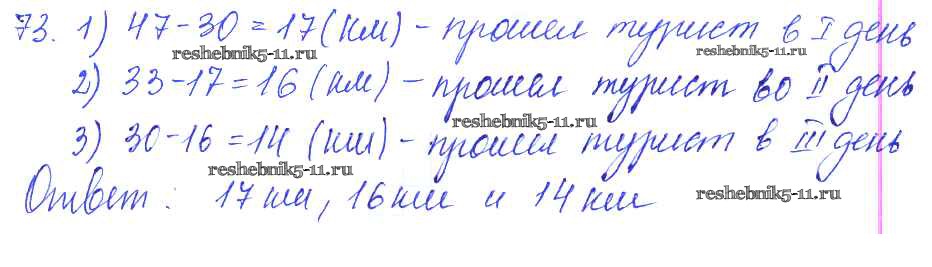 73. 1) 47-30=17(км) - прошел турист в I день
reshebnik5-11.ru reshebnik5-11.ru
2) 33-17=16 (км) - прошел турист во II день
reshebnik5-11.ru
3) 30-16=14 (км) - прошел турист в III день
reshebnik5-11.ru
Ответ: 17км, 16км и 14 км
reshebnik5-11.ru